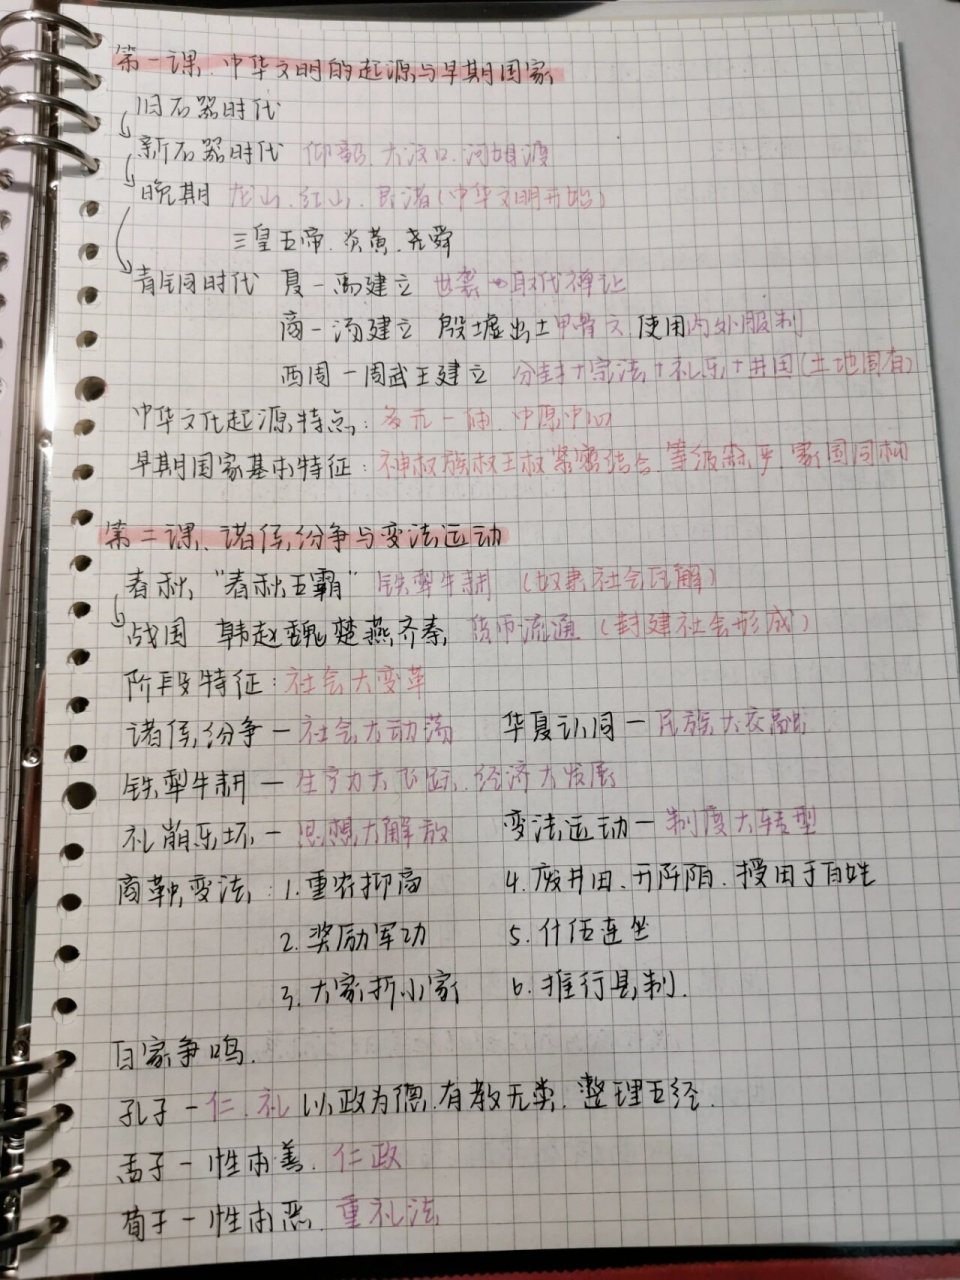 第一课、中华文明的起源与早期国家
旧石器时代
新石器时代 仰韶、大汶口、河姆渡
晚期 龙山、红山、良渚(中华文明开始)
三皇五帝、炎黄、尧舜
青铜时代 夏—禹建立 世袭取代禅让
商—汤建立 殷墟出土甲骨文 使用内外服制
西周—周武王建立 分封+宗法+礼乐+井田(土地国有)
中华文化起源特点：多元一体、中原中心
早期国家基本特征：神权族权王权紧密结合、等级森严、家国同构
第二课、诸侯纷争与变法运动
春秋 "春秋五霸" 铁犁牛耕 (奴隶社会瓦解)
战国 韩赵魏楚燕齐秦 货币流通 (封建社会形成)
阶段特征：社会大变革
诸侯纷争—社会大动荡 华夏认同—民族大交融
铁犁牛耕—生产力大飞跃、经济大发展
礼崩乐坏—思想大解放 变法运动—制度大转型
商鞅变法：1.重农抑商 4.废井田、开阡陌、授田于百姓
2.奖励军功 5.什伍连坐
3.大家拆小家 6.推行县制.
百家争鸣.
孔子—仁、礼 以政为德、有教无类、整理五经.
孟子—性本善、仁政
荀子—性本恶、重礼法